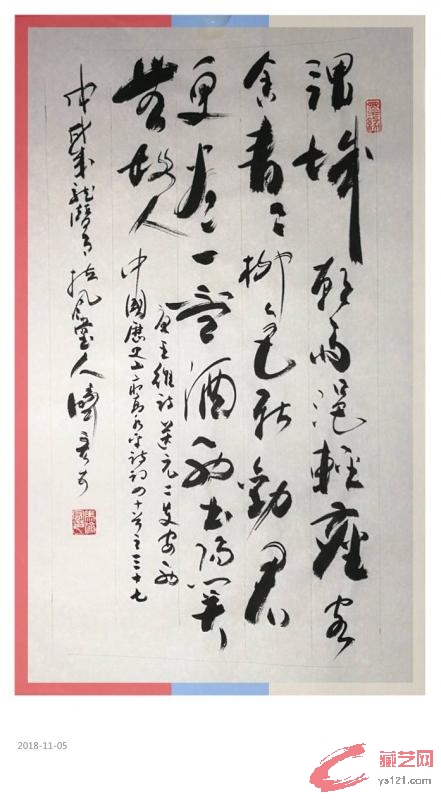 渭城朝雨浥輕塵客
舍青々柳色新勸君
更盡一杯酒西出陽關
無故人
唐王維詩送元二使安西
中國歷史上最高水平詩詞四十首之三十七
戊戌年龍潛月拾風堂人
2018-11-05
藏艺网
ys121.com